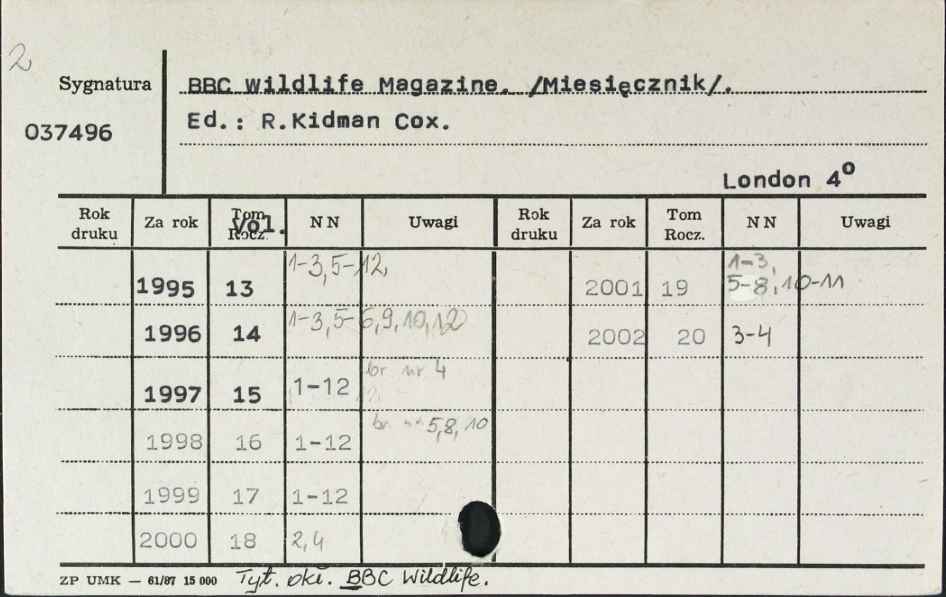 2
Sygnatura
037496
BBC Wildlife Magazine. /Miesięcznik/.
Ed.: R.Kidman Cox.
London 4°
Rok druku Za rok Tom Rocz. Vol. NN Uwagi Rok druku Za rok Tom Rocz. NN Uwagi
1995 13 1-3,5-12, 2001 19 1-3, 5-8,10-11
1996 14 1-3,5-6,9,10,12 2002 20 3-4
1997 15 1-12 br nr 4
1998 16 1-12 br nr 5,8,10
1999 17 1-12
2000 18 2,4
ZP UMK — 61/87 15 000 Tyt. okł. BBC Wildlife.